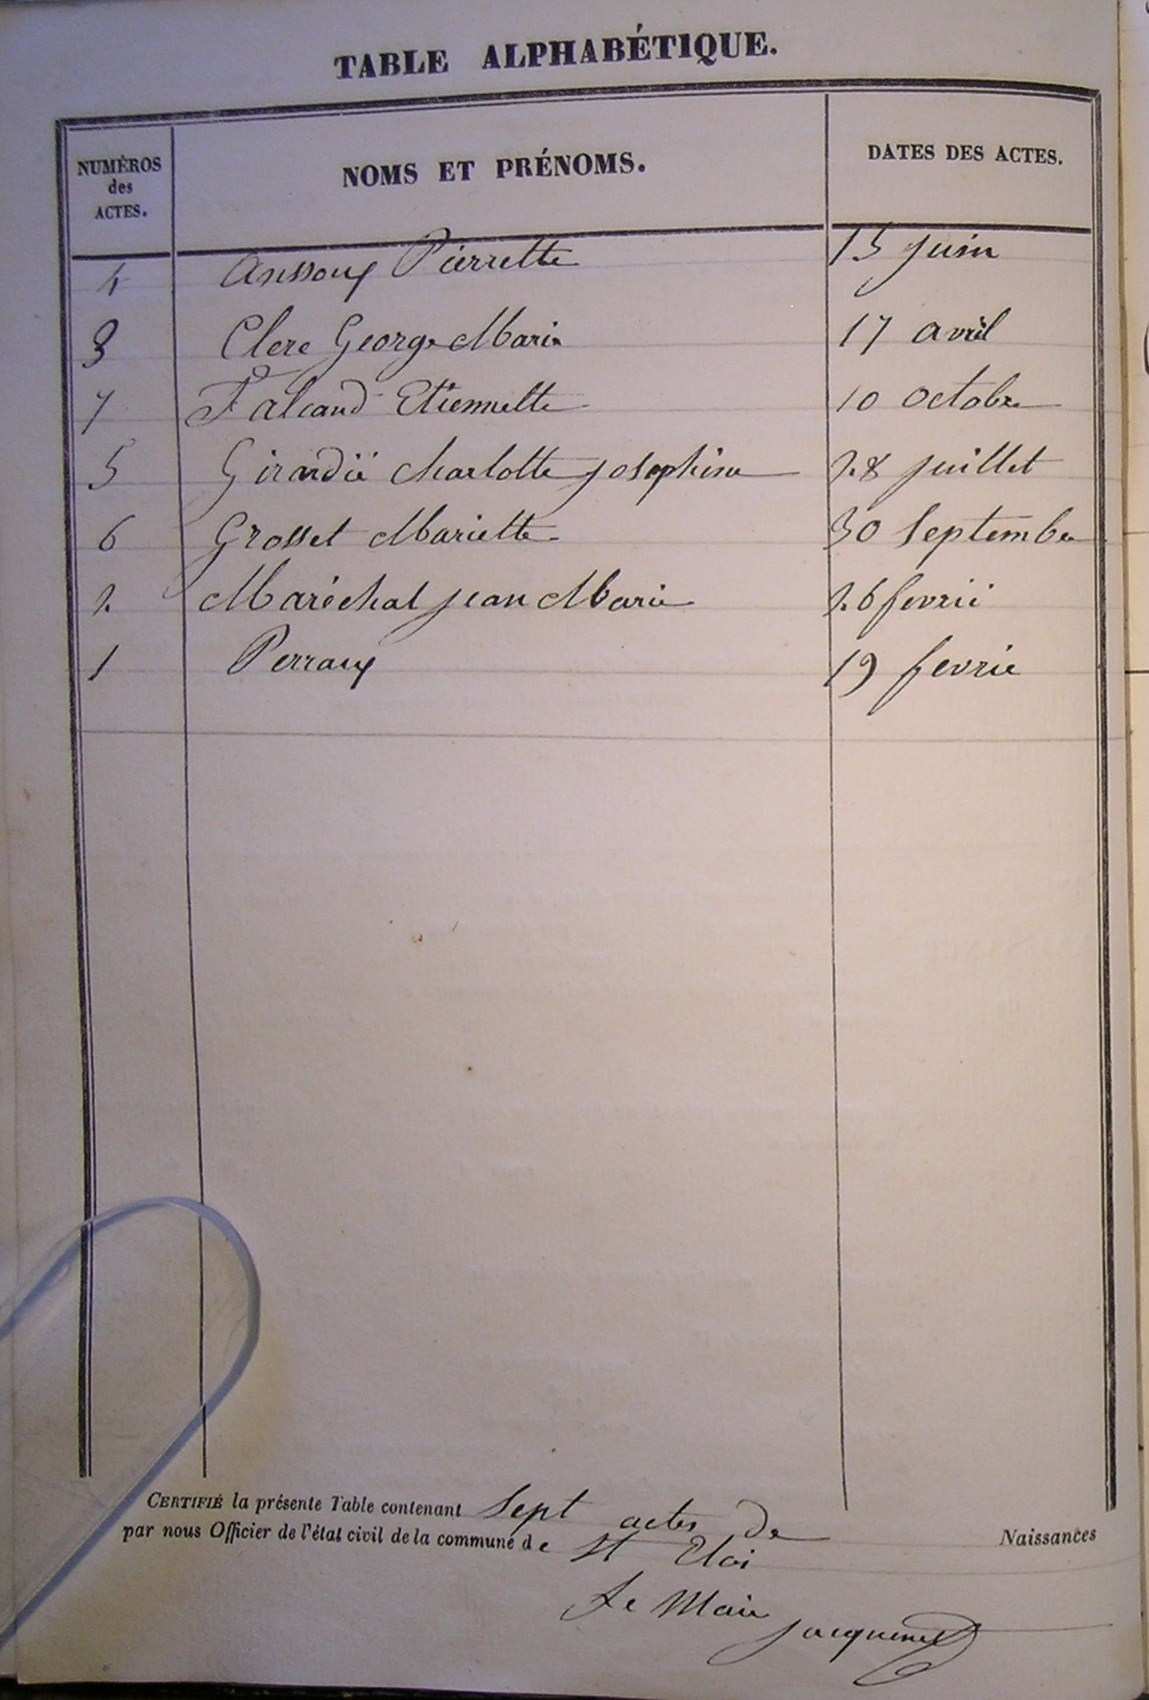 TABLE ALPHABÉTIQUE.
NUMÉROS des ACTES. NOMS ET PRÉNOMS. DATES DES ACTES.
4 Anssoux Pierrette 15 juin
3 Clere George Marie 17 avril
7 Falcand Etiennette 10 octobre
5 Girardié Charlotte josephine 28 juillet
6 Grosset Mariette 30 Septembre
2 Maréchal jean Marie 26 fevrié
1 Perraux 19 fevrie
CERTIFIÉ la présente Table contenant Sept actes de Naissances
par nous Officier de l'état civil de la commune de St Eloi
Le Maire
jacquemet